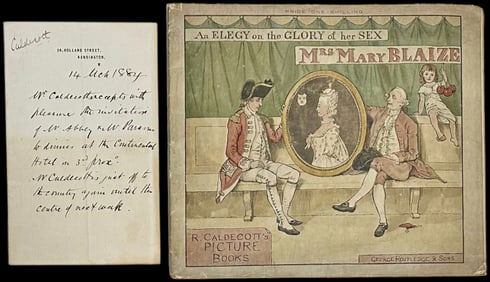 Caldecott
24, HOLLAND STREET,
KENSINGTON,
W.
14 Mch 1884
Mr Caldecott accepts with
pleasure the invitation
of Mr Abbey & Mr Parsons
to dinner at the Continental
Hotel on 3rd proxo.
Mr Caldecott is just off to
the country again until the
centre of next week.
PRICE ONE SHILLING
An ELEGY on the GLORY of her SEX
MRS MARY BLAIZE
R. CALDECOTT'S
PICTURE
BOOKS
GEORGE ROUTLEDGE & SONS